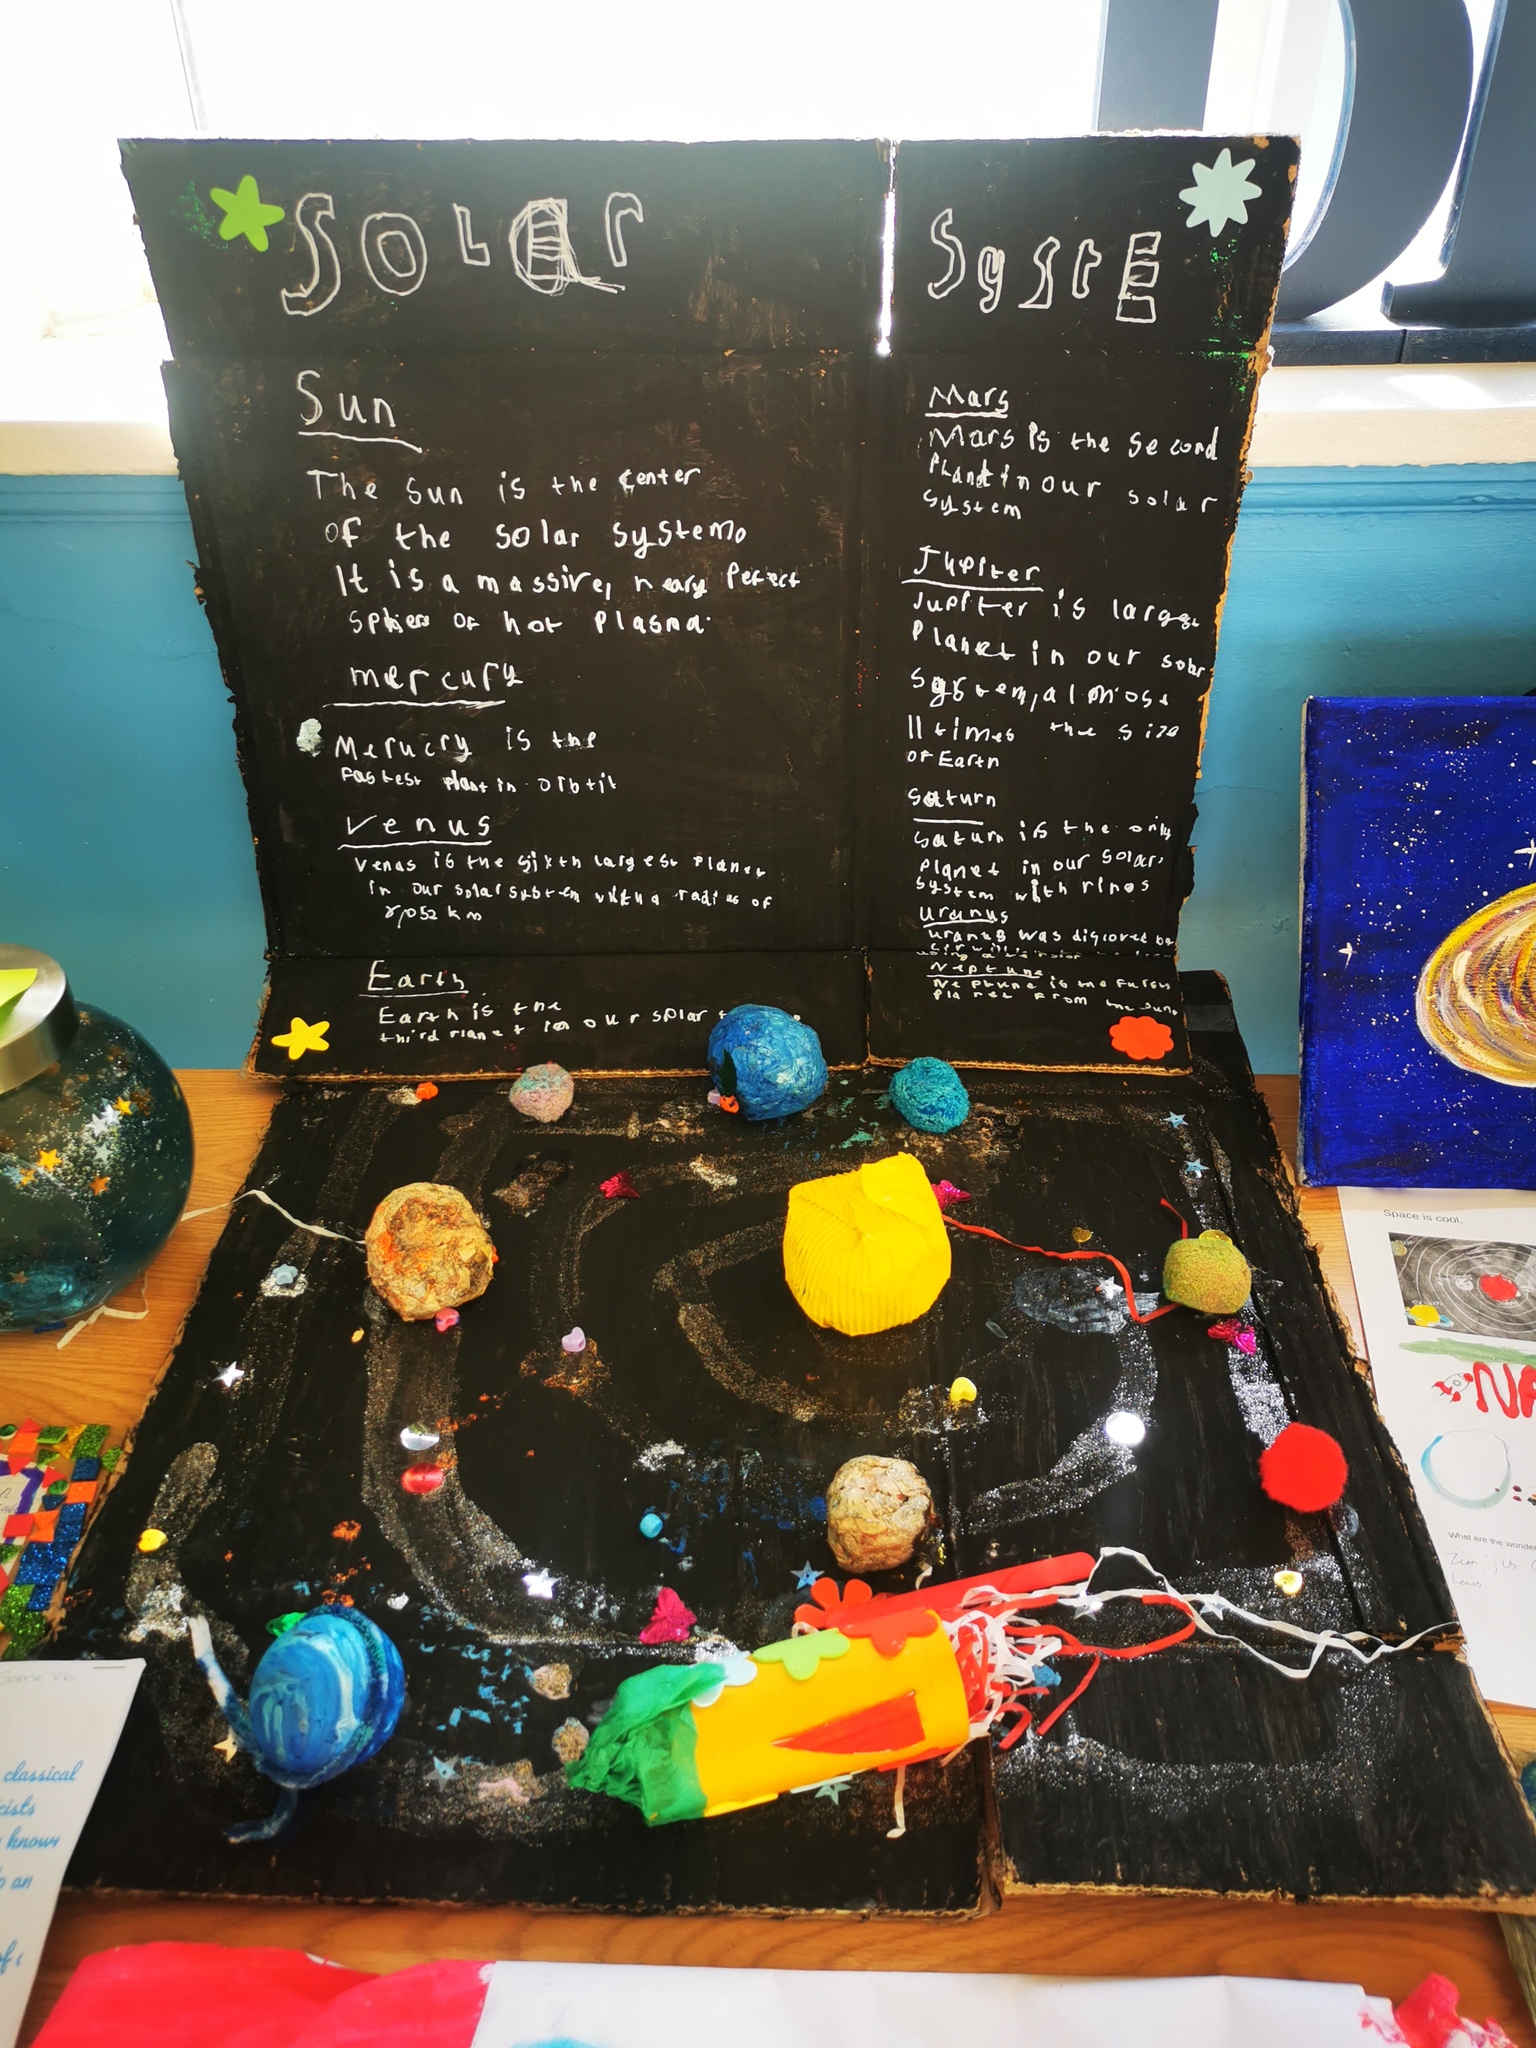 SOLar
SystE
Sun
The Sun is the center
of the solar system.
It is a massive, neary Perfect
sphere of hot Plasma.
mercury
Merucry is the
fastest planet in orbtit
Venus
Venus is the sixth largest planet
in our solar system with a radius of
km
Earth
Earth is the
third Planet in our solar
Mars
Mars is the second
Planet in our solar
system
Jupiter
Jupiter is larges
Planet in our solar
System, almost
11 times the size
of Earth
Saturn
Saturn is the only
Planet in our solar
System with rings
Uranus
Uranus was discovered by
Neptune
Neptune is the
planet from the sun
Space is cool.
NA
What are the wonder
Some Yb
classical
cists
know
o an
of